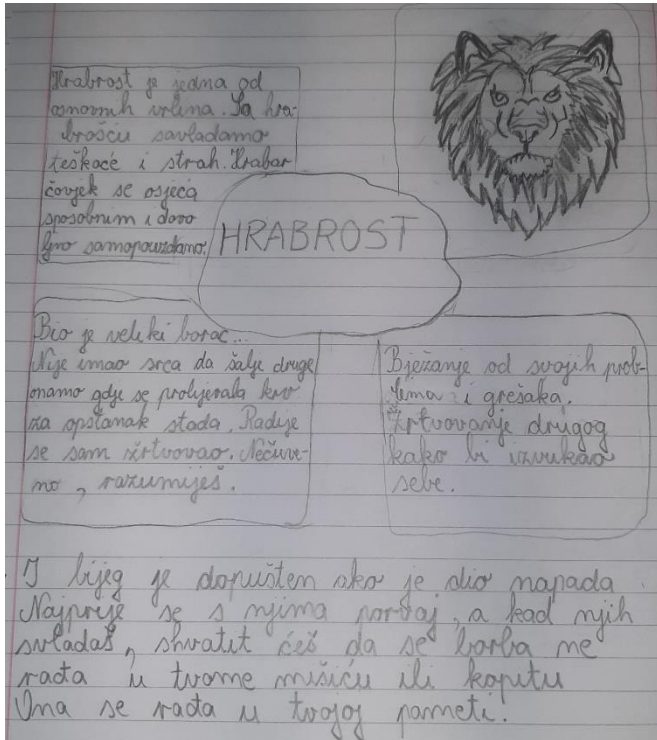 Hrabrost je jedna od
osnovnih vrlina. Sa hra-
brošću savladamo
teškoće i strah. Hrabar
čovjek se osjeća
sposobnim i dovo
ljno samopouzdano.
HRABROST
Bio je veliki borac...
Nije imao srca da šalje druge
onamo gdje se prolijevala krv
za opstanak stada. Radije
se sam žrtvovao. Nečuve-
no, razumiješ.
Bježanje od svojih prob-
lema i grešaka.
Žrtvovanje drugog
kako bi izvukao
sebe.
I bijeg je dopušten ako je dio napada
Najprije se s njima porvaj, a kad njih
svladaš, shvatit ćeš da se borba ne
rađa u tvome mišiću ili koputu
Ona se rađa u tvojoj pameti.